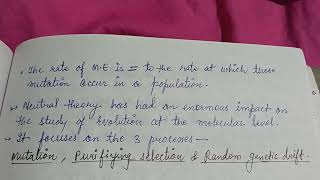 . The rate of M.E is = to the rate at which these
mutation occur in a population.
→ Neutral theory has had an enormous impact on
the study of Evolution at the molecular level.
→ It focuses on the 3 processes —
Mutation, Purifiying selection & Random genetic drift.